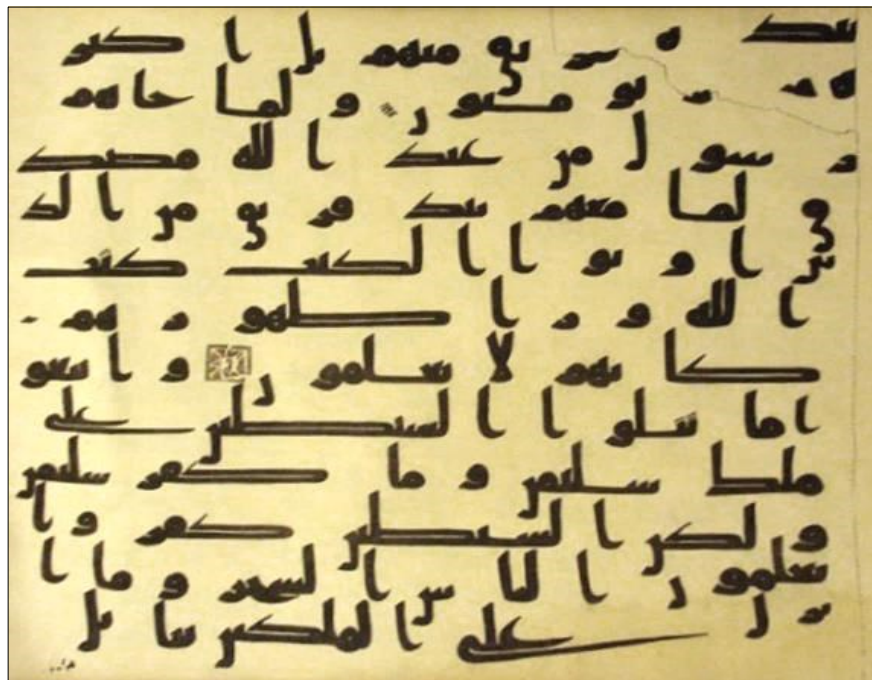 نبذه فريق منهم بل اكثر
هم لا يومنون ولما جاهم
رسول من عند الله مصد
ق لما معهم نبذ فريق من الذ
ين اوتوا الكتب كتب
الله ورا ظهورهم
كانهم لا يعلمون واتبعو
ا ما تتلوا الشيطين على
ملك سليمن وما كفر سليمن
ولكن الشيطين كفروا
يعلمون الناس السحر وما ا
نزل على الملكين ببابل